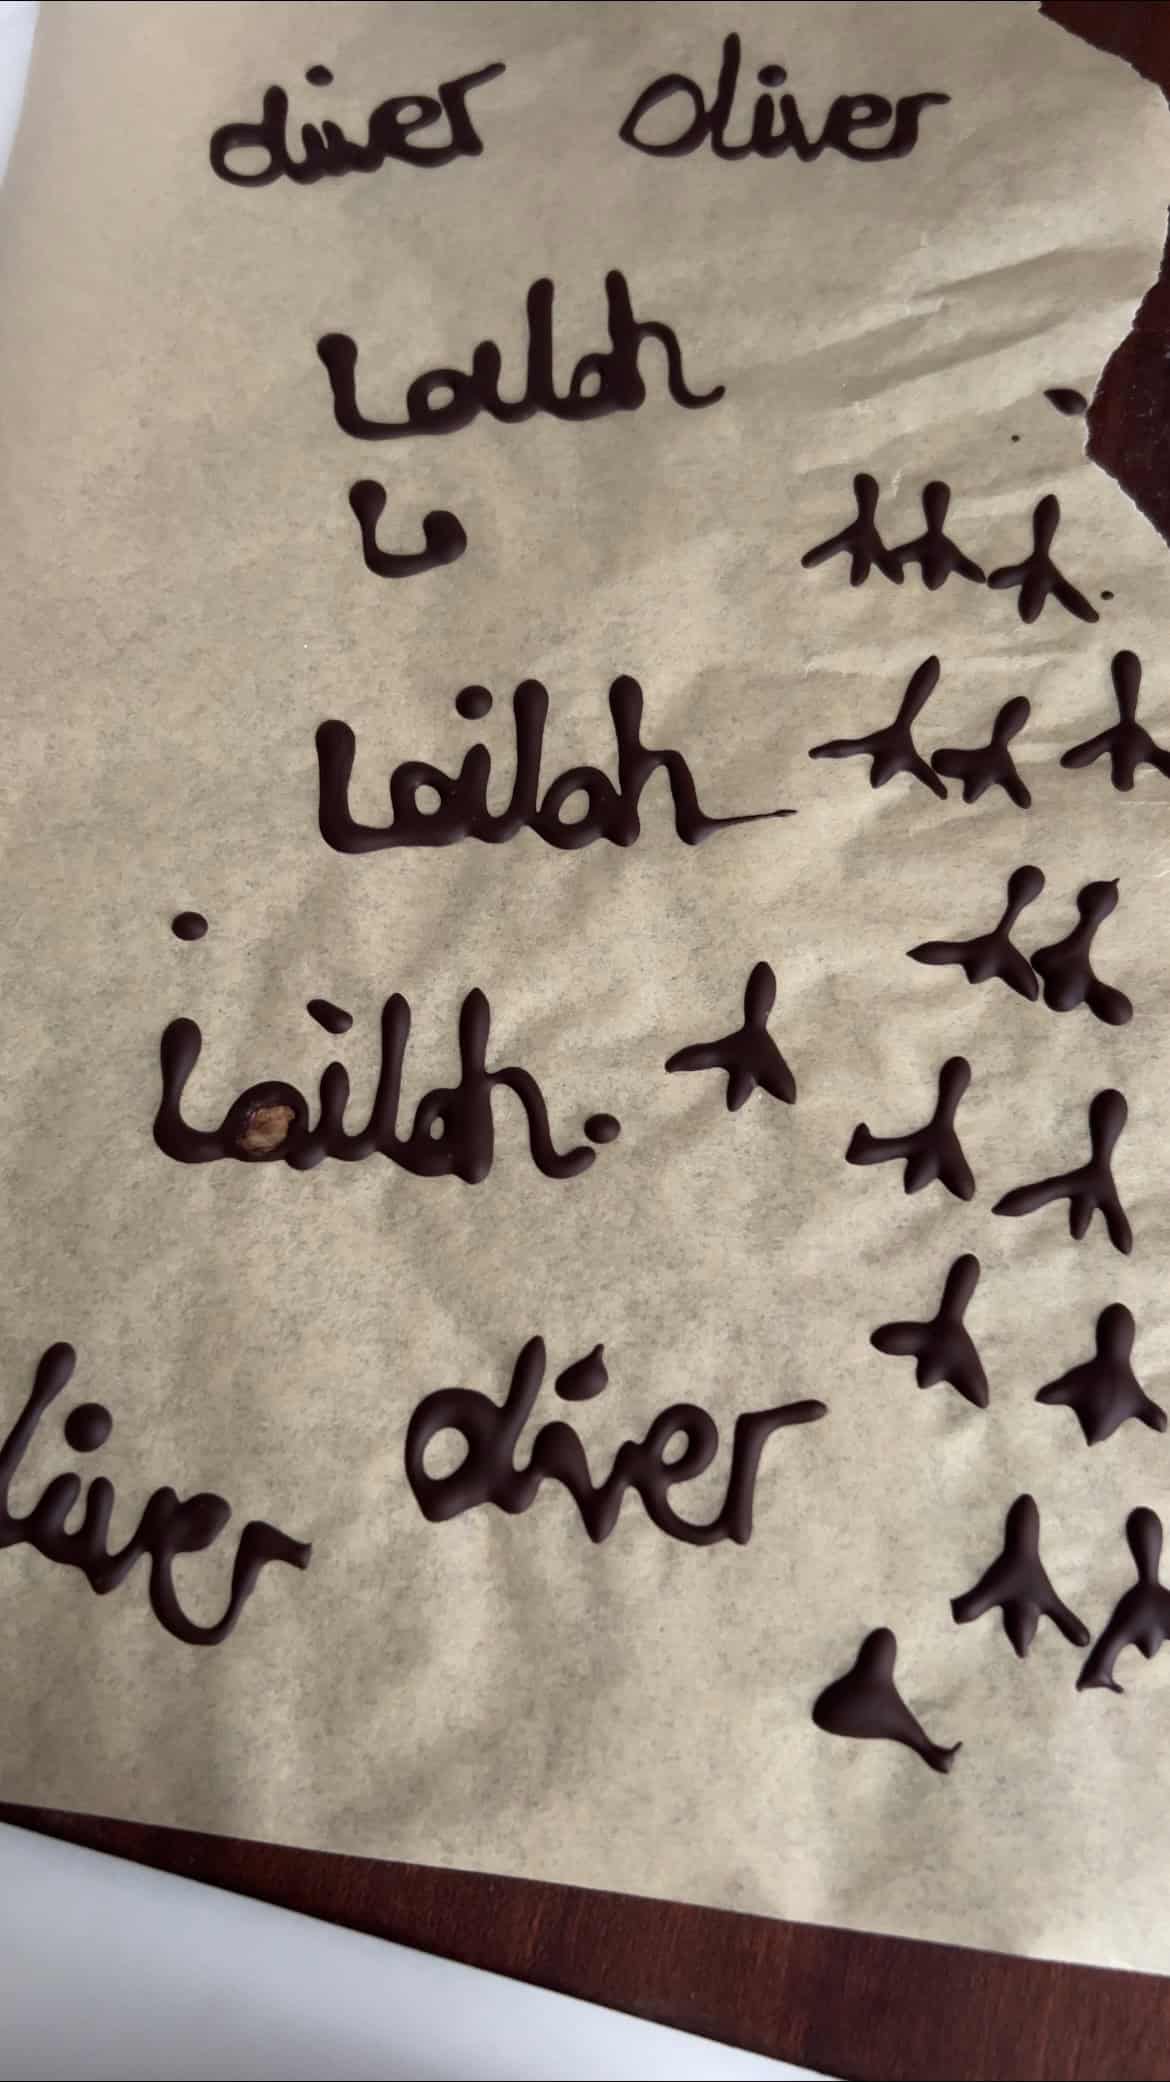 Oliver Oliver
Lailah
Lailah
Lailah
liver Oliver